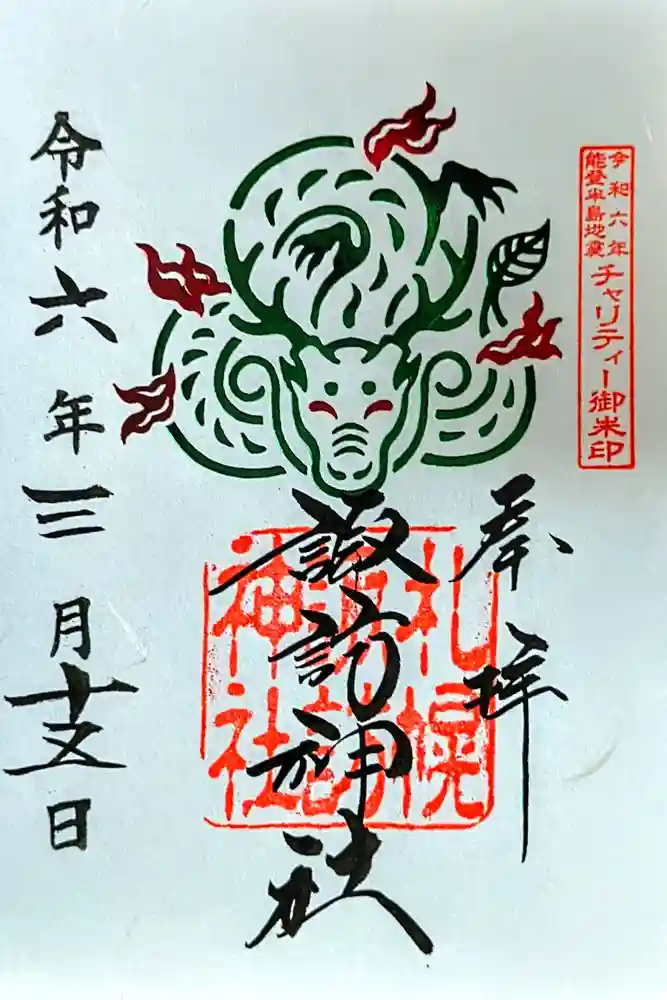 令和六年
能登半島地震
チャリティー御朱印
奉拝
諏訪神社
札幌
諏訪
神社
令和六年三月十五日